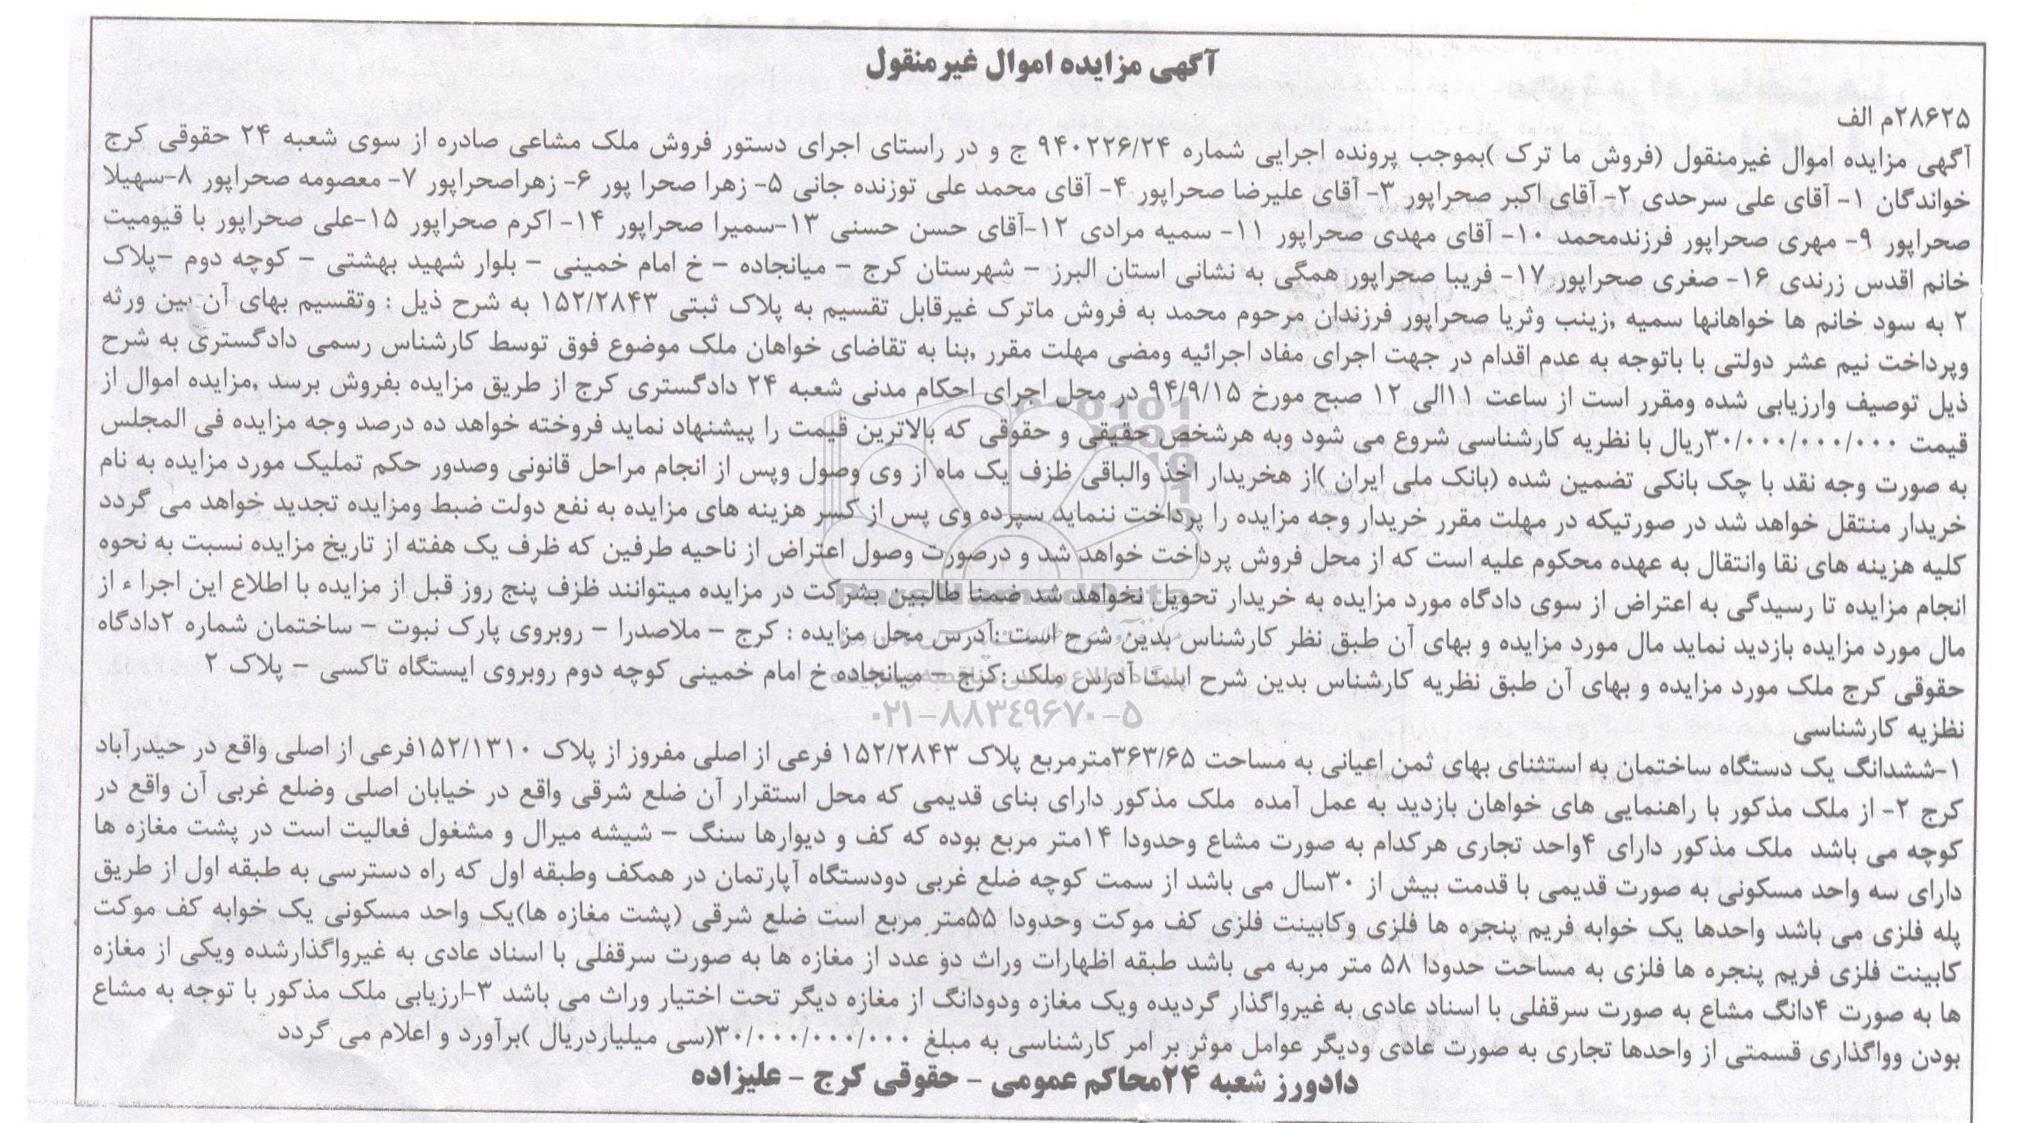 آگهی مزایده اموال غیرمنقول
۲۸۶۲۵م الف
آگهی مزایده اموال غیرمنقول (فروش ما ترک )بموجب پرونده اجرایی شماره ۹۴۰۲۲۶/۲۴ ج و در راستای اجرای دستور فروش ملک مشاعی صادره از سوی شعبه ۲۴ حقوقی کرج
خواندگان ۱- آقای علی سرحدی ۲- آقای اکبر صحراپور ۳- آقای علیرضا صحراپور ۴- آقای محمد علی توزنده جانی ۵- زهرا صحرا پور ۶- زهراصحراپور ۷- معصومه صحراپور ۸-سهیلا
صحراپور ۹- مهری صحراپور فرزندمحمد ۱۰- آقای مهدی صحراپور ۱۱- سمیه مرادی ۱۲-آقای حسن حسنی ۱۳-سمیرا صحراپور ۱۴- اکرم صحراپور ۱۵-علی صحراپور با قیومیت
خانم اقدس زرندی ۱۶- صغری صحراپور ۱۷- فریبا صحراپور همگی به نشانی استان البرز – شهرستان کرج – میانجاده – خ امام خمینی – بلوار شهید بهشتی – کوچه دوم –پلاک
۲ به سود خانم ها خواهانها سمیه ,زینب وثریا صحراپور فرزندان مرحوم محمد به فروش ماترک غیرقابل تقسیم به پلاک ثبتی ۱۵۲/۲۸۴۳ به شرح ذیل : وتقسیم بهای آن بین ورثه
وپرداخت نیم عشر دولتی با باتوجه به عدم اقدام در جهت اجرای مفاد اجرائیه ومضی مهلت مقرر ,بنا به تقاضای خواهان ملک موضوع فوق توسط کارشناس رسمی دادگستری به شرح
ذیل توصیف وارزیابی شده ومقرر است از ساعت ۱۱الی ۱۲ صبح مورخ ۹۴/۹/۱۵ در محل اجرای احکام مدنی شعبه ۲۴ دادگستری کرج از طریق مزایده بفروش برسد ,مزایده اموال از
قیمت ۳۰/۰۰۰/۰۰۰/۰۰۰ریال با نظریه کارشناسی شروع می شود وبه هرشخص حقیقی و حقوقی که بالاترین قیمت را پیشنهاد نماید فروخته خواهد ده درصد وجه مزایده فی المجلس
به صورت وجه نقد با چک بانکی تضمین شده (بانک ملی ایران )از هخریدار اخذ والباقی ظزف یک ماه از وی وصول وپس از انجام مراحل قانونی وصدور حکم تملیک مورد مزایده به نام
خریدار منتقل خواهد شد در صورتیکه در مهلت مقرر خریدار وجه مزایده را پرداخت ننماید سپرده وی پس از کسر هزینه های مزایده به نفع دولت ضبط ومزایده تجدید خواهد می گردد
کلیه هزینه های نقا وانتقال به عهده محکوم علیه است که از محل فروش پرداخت خواهد شد و درصورت وصول اعتراض از ناحیه طرفین که ظرف یک هفته از تاریخ مزایده نسبت به نحوه
انجام مزایده تا رسیدگی به اعتراض از سوی دادگاه مورد مزایده به خریدار تحویل نخواهد شد ضمنا طالبین بشرکت در مزایده میتوانند ظزف پنج روز قبل از مزایده با اطلاع این اجرا ء از
مال مورد مزایده بازدید نماید مال مورد مزایده و بهای آن طبق نظر کارشناس بدین شرح است :آدرس محل مزایده : کرج – ملاصدرا – روبروی پارک نبوت – ساختمان شماره ۲دادگاه
حقوقی کرج ملک مورد مزایده و بهای آن طبق نظریه کارشناس بدین شرح است آدرس ملک :کرج – میانجاده خ امام خمینی کوچه دوم روبروی ایستگاه تاکسی – پلاک ۲
۰۲۱-۸۸۳۴۹۶۷۰-۵
نظزیه کارشناسی
۱-ششدانگ یک دستگاه ساختمان به استثنای بهای ثمن اعیانی به مساحت ۳۶۳/۶۵مترمربع پلاک ۱۵۲/۲۸۴۳ فرعی از اصلی مفروز از پلاک ۱۵۲/۱۳۱۰فرعی از اصلی واقع در حیدرآباد
کرج ۲- از ملک مذکور با راهنمایی های خواهان بازدید به عمل آمده ملک مذکور دارای بنای قدیمی که محل استقرار آن ضلع شرقی واقع در خیابان اصلی وضلع غربی آن واقع در
کوچه می باشد ملک مذکور دارای ۴واحد تجاری هرکدام به صورت مشاع وحدودا ۱۴متر مربع بوده که کف و دیوارها سنگ – شیشه میرال و مشغول فعالیت است در پشت مغازه ها
دارای سه واحد مسکونی به صورت قدیمی با قدمت بیش از ۳۰سال می باشد از سمت کوچه ضلع غربی دودستگاه آپارتمان در همکف وطبقه اول که راه دسترسی به طبقه اول از طریق
پله فلزی می باشد واحدها یک خوابه فریم پنجره ها فلزی وکابینت فلزی کف موکت وحدودا ۵۵متر مربع است ضلع شرقی (پشت مغازه ها)یک واحد مسکونی یک خوابه کف موکت
کابینت فلزی فریم پنجره ها فلزی به مساحت حدودا ۵۸ متر مربه می باشد طبقه اظهارات وراث دو عدد از مغازه ها به صورت سرقفلی با اسناد عادی به غیرواگذارشده ویکی از مغازه
ها به صورت ۴دانگ مشاع به صورت سرقفلی با اسناد عادی به غیرواگذار گردیده ویک مغازه ودودانگ از مغازه دیگر تحت اختیار وراث می باشد ۳-ارزیابی ملک مذکور با توجه به مشاع
بودن وواگذاری قسمتی از واحدها تجاری به صورت عادی ودیگر عوامل موثر بر امر کارشناسی به مبلغ ۳۰/۰۰۰/۰۰۰/۰۰۰(سی میلیاردریال )برآورد و اعلام می گردد
دادورز شعبه ۲۴محاکم عمومی – حقوقی کرج – علیزاده